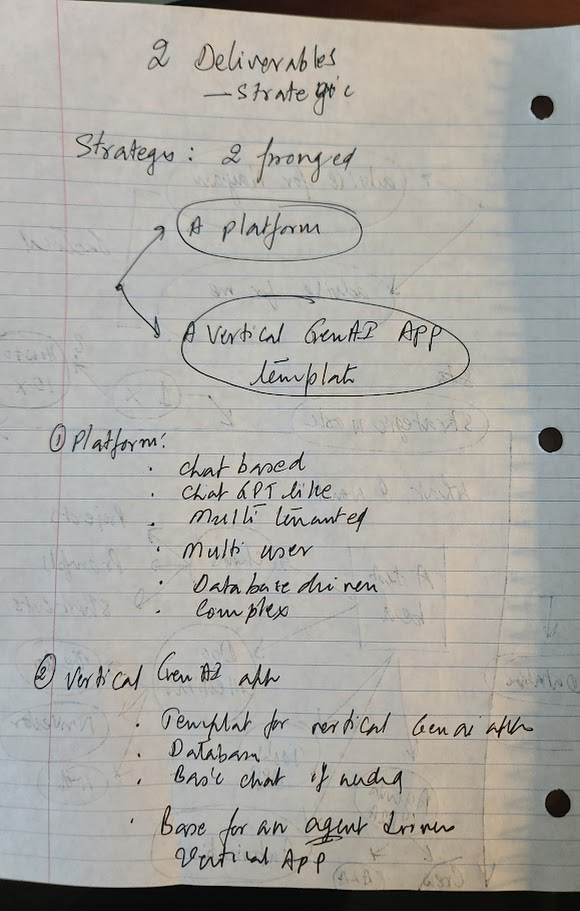 2 Deliverables
— Strategic
Strategy: 2 pronged
A platform
A Vertical GenAI APP
Templat
① Platform:
· Chat based
· Chat GPT like
· Multi tenanted
· Multi user
· Database driven
· Complex
② Vertical GenAI app
· Templat for vertical Genai app
· Database
· Basic chat if needed
· Base for an agent driven
Vertical App